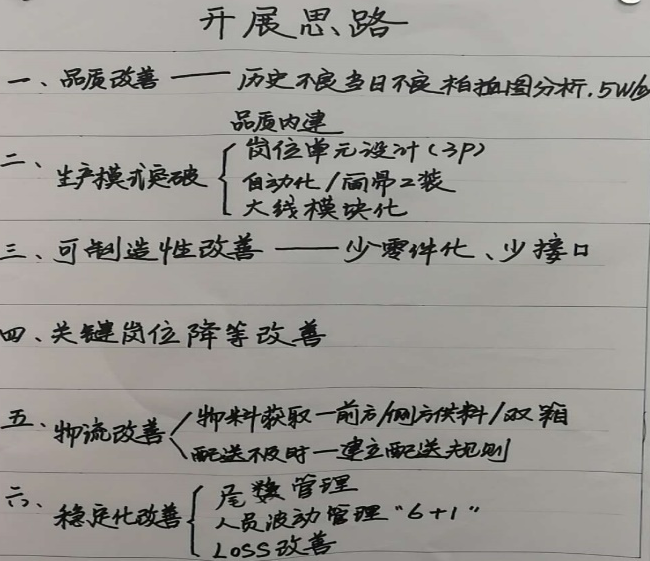 开展思路
一、品质改善 —— 历史不良当日不良柏拉图分析.5W/
品质内建
二、生产模式突破
岗位单元设计(3P)
自动化/面带工装
大线模块化
三、可制造性改善 —— 少零件化、少接口
四、关键岗位降等改善
五、物流改善
物料获取—前方/侧方供料/双箱
配送不及时—建立配送规则
六、稳定化改善
尾数管理
人员波动管理"6+1"
LOSS改善